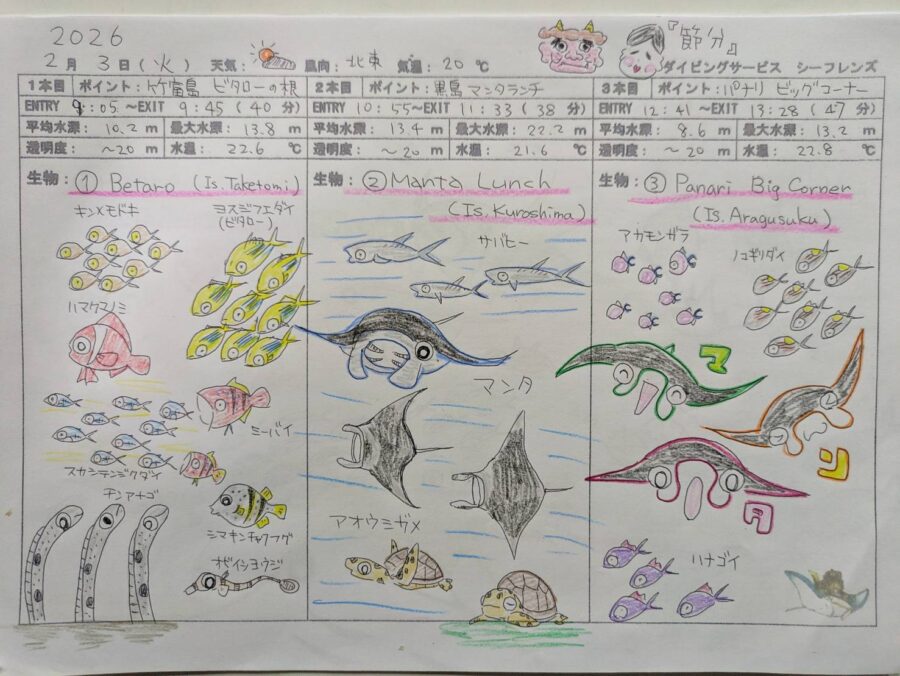 2026
『節分』
2月 3日(火) 天気: 風向: 北東 気温: 20 ℃ ダイビングサービス シーフレンズ
1本目 ポイント: 竹富島 ビタローの根
ENTRY 9:05~EXIT 9:45 (40分)
平均水深: 10.2 m 最大水深: 13.8 m
透明度: ~20 m 水温: 22.6 ℃
生物: ① Betaro (Is. Taketomi)
キンメモドキ
ヨスジフエダイ
(ビタロー)
ハマクマノミ
ミーバイ
スカシテンジクダイ
チンアナゴ
シマキンチャクフグ
オイランヨウジ
2本目 ポイント: 黒島 マンタランチ
ENTRY 10:55~EXIT 11:33 (38分)
平均水深: 13.4 m 最大水深: 22.2 m
透明度: ~20 m 水温: 21.6 ℃
生物: ② Manta Lunch
(Is. Kuroshima)
サバヒー
マンタ
アオウミガメ
3本目 ポイント: パナリ ビッグコーナー
ENTRY 12:41~EXIT 13:28 (47分)
平均水深: 8.6 m 最大水深: 13.2 m
透明度: ~20 m 水温: 22.8 ℃
生物: ③ Panari Big Corner
(Is. Aragusuku)
アカモンガラ
ノコギリダイ
マ
ン
タ
ハナゴイ